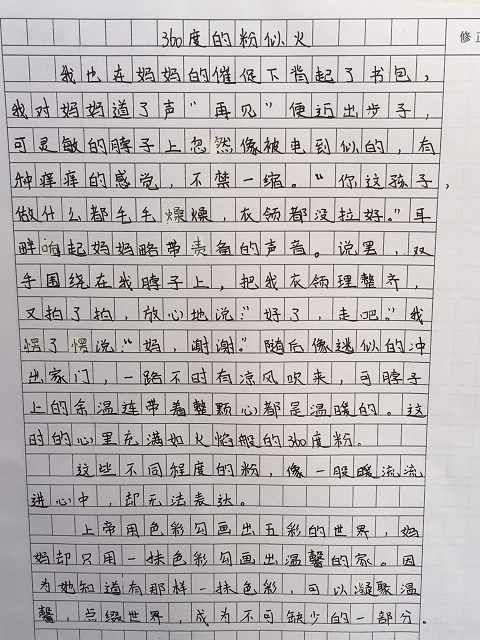 360度的粉似火
修正
我也在妈妈的催促下背起了书包，
我对妈妈道了声“再见”便迈出步子，
可灵敏的脖子上忽然像被电到似的，有
种痒痒的感觉，不禁一缩。“你这孩子，
做什么都毛毛燥燥，衣领都没拉好。”耳
畔响起妈妈略带责备的声音。说罢，双
手围绕在我脖子上，把我衣领理整齐，
又拍了拍，放心地说：“好了，走吧。”我
愣了愣说：“妈，谢谢。”随后像逃似的冲
出家门，一路不时有凉风吹来，可脖子
上的余温连带着整颗心都是温暖的。这
时的心里充满如火焰般的360度粉。
这些不同程度的粉，像一股暖流流
进心中，却无法表达。
上帝用色彩勾画出五彩的世界，妈
妈却只用一抹色彩勾画出温馨的家。因
为她知道有那样一抹色彩，可以凝聚温
馨，点缀世界，成为不可缺少的一部分。